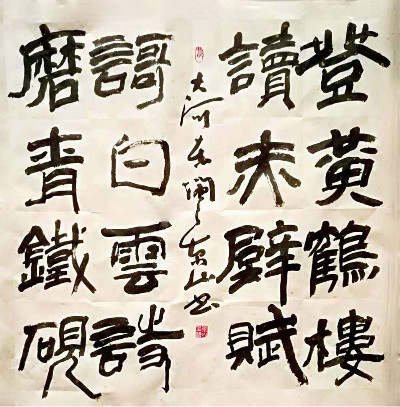 登黄鶴樓
讀赤壁賦
大河東山書
謌白雲詩
磨青鐵硯